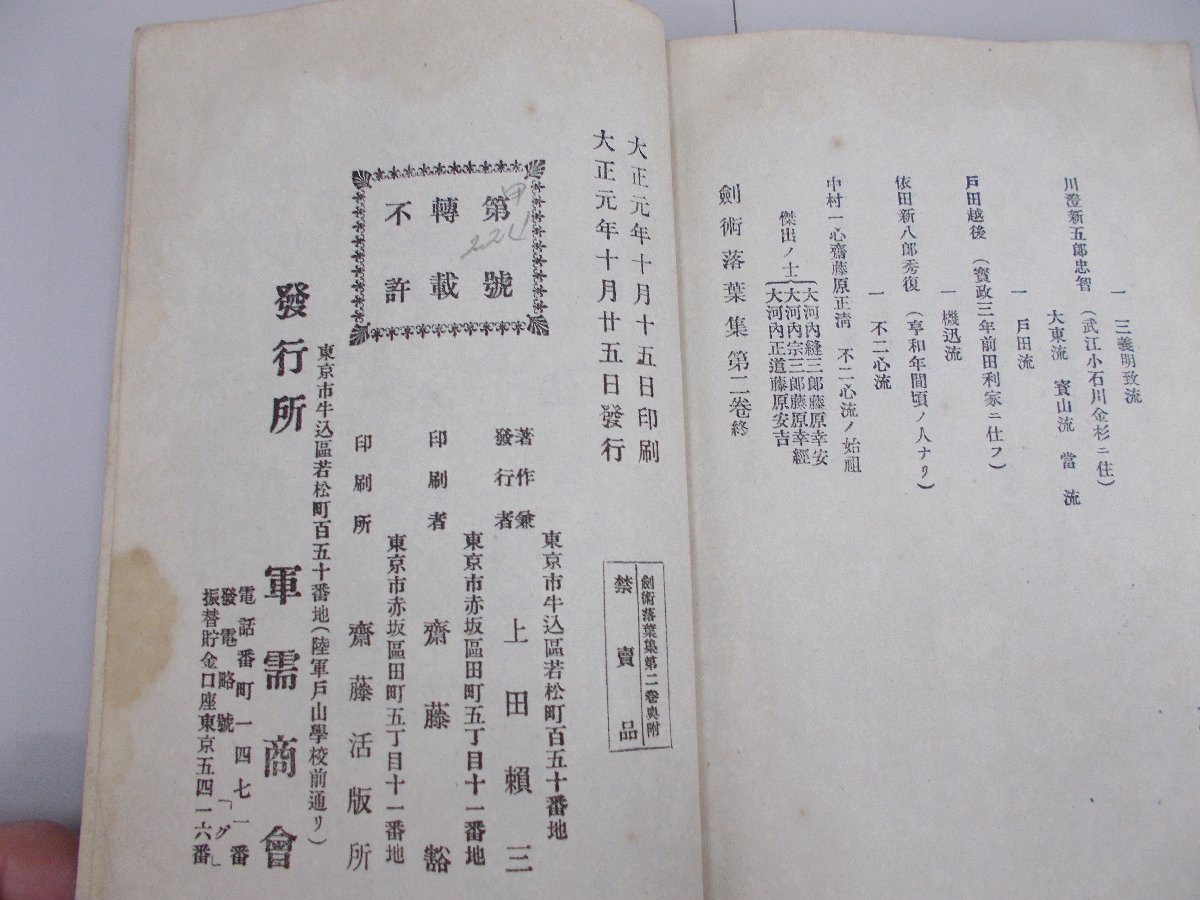 一 三義明致流
川澄新五郎忠智 (武江小石川金杉ニ住)
大東流 寳山流 當流
一 戸田流
戸田越後 (寳政三年前田利家ニ仕フ)
一 機迅流
依田新八郎秀復 (享和年間頃ノ人ナリ)
一 不二心流
中村一心齋藤原正淸 不二心流ノ始祖
傑出ノ士
大河内縫三郎藤原幸安
大河内宗三郎藤原幸經
大河内正道藤原安吉
劍術落葉集第二卷終
劍術落葉集第二卷奥附
禁賣品
大正元年十月十五日印刷
大正元年十月廿五日發行
第甲224號
轉載
不許
東京市牛込區若松町百五十番地
著作兼
發行者 上田賴三
東京市赤坂區田町五丁目十一番地
印刷者 齋藤豁
東京市赤坂區田町五丁目十一番地
印刷所 齋藤活版所
東京市牛込區若松町百五十番地(陸軍戸山學校前通リ)
發行所 軍需商會
電話番町一四七一番
發電略號「グ」
振替貯金口座東京五四一六番